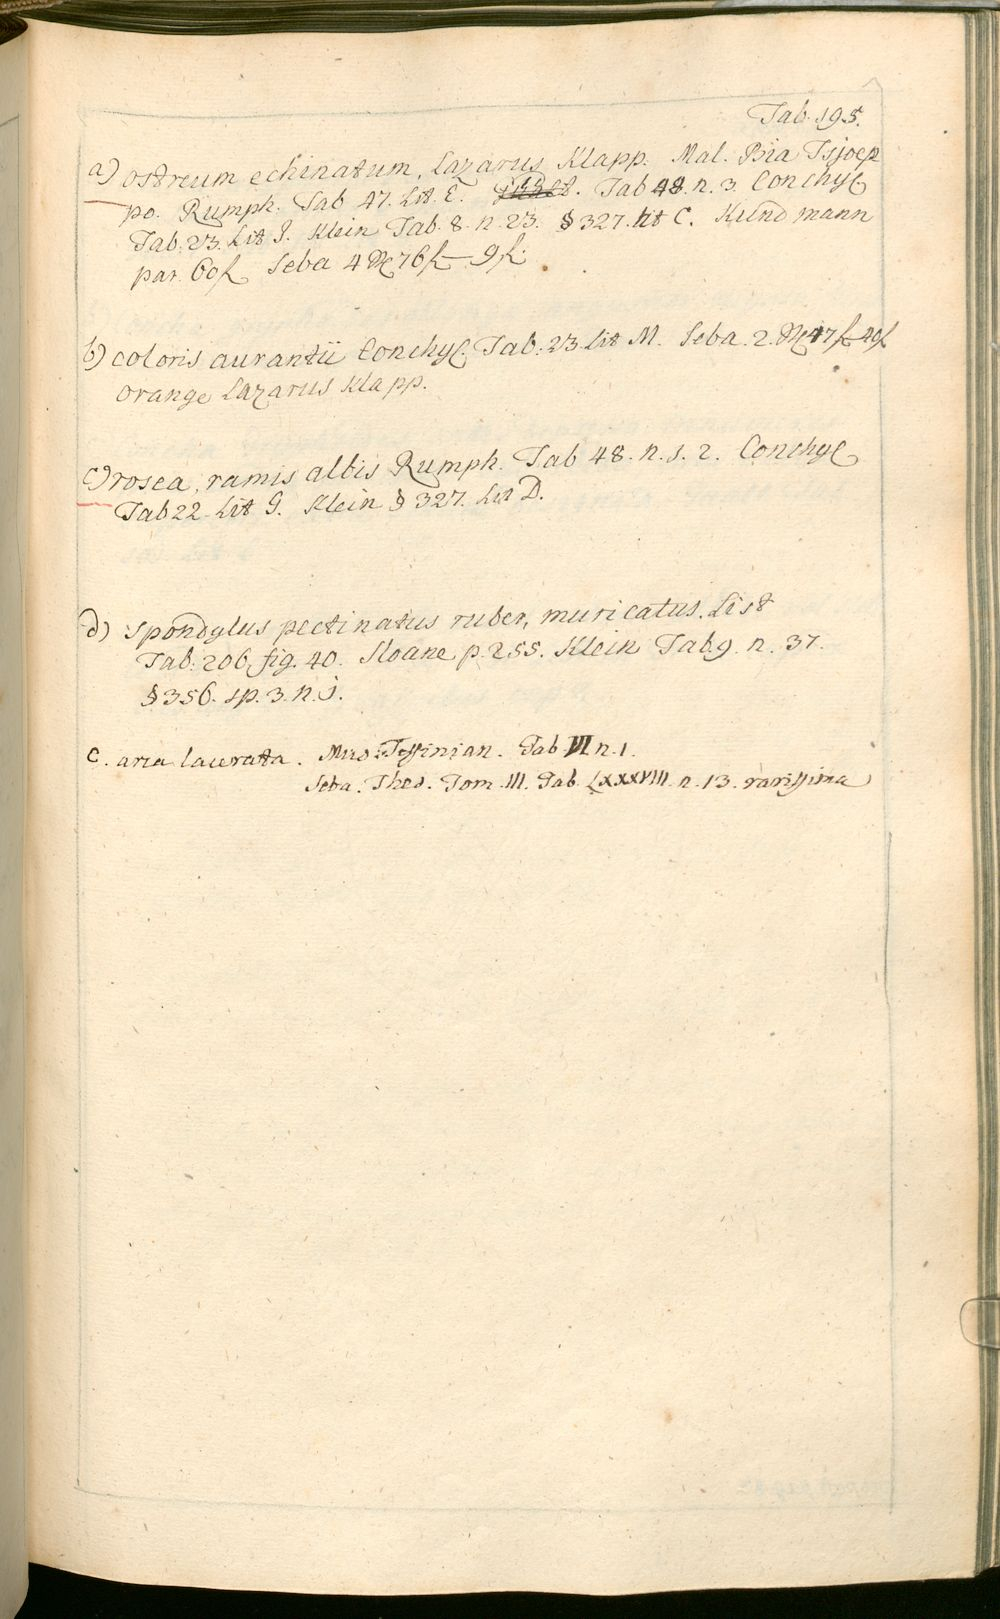 Tab. 195.
a) ostreum echinatum, Lazarus Klapp. Mal. Bia Tsjoep
po. Rumph. Tab 47. Lit. E. Tab 48. n. 3. Conchyl
Tab. 23. Lit I. Klein Tab. 8. n. 23. § 327. lit C. Kundmann
par. 60 f. Seba 4 76 f. 9 f.
b) coloris aurantii Conchyl. Tab. 23. Lit M. Seba. 2. 47 f. 40 f
orange Lazarus Klapp.
c) rosea, ramis albis Rumph. Tab 48. n. 1. 2. Conchyl
Tab 22. Lit G. Klein § 327. Lit D.
d) spondylus pectinatus ruber, muricatus. List
Tab: 206. fig. 40. Sloane p. 255. Klein Tab. 9. n. 37.
§ 356. sp. 3. n. 1.
e. laurata. Mus: Tessinian. Tab VI n. 1.
Seba. Thes. Tom. III. Tab. LXXXVIII. n. 13. rarissima